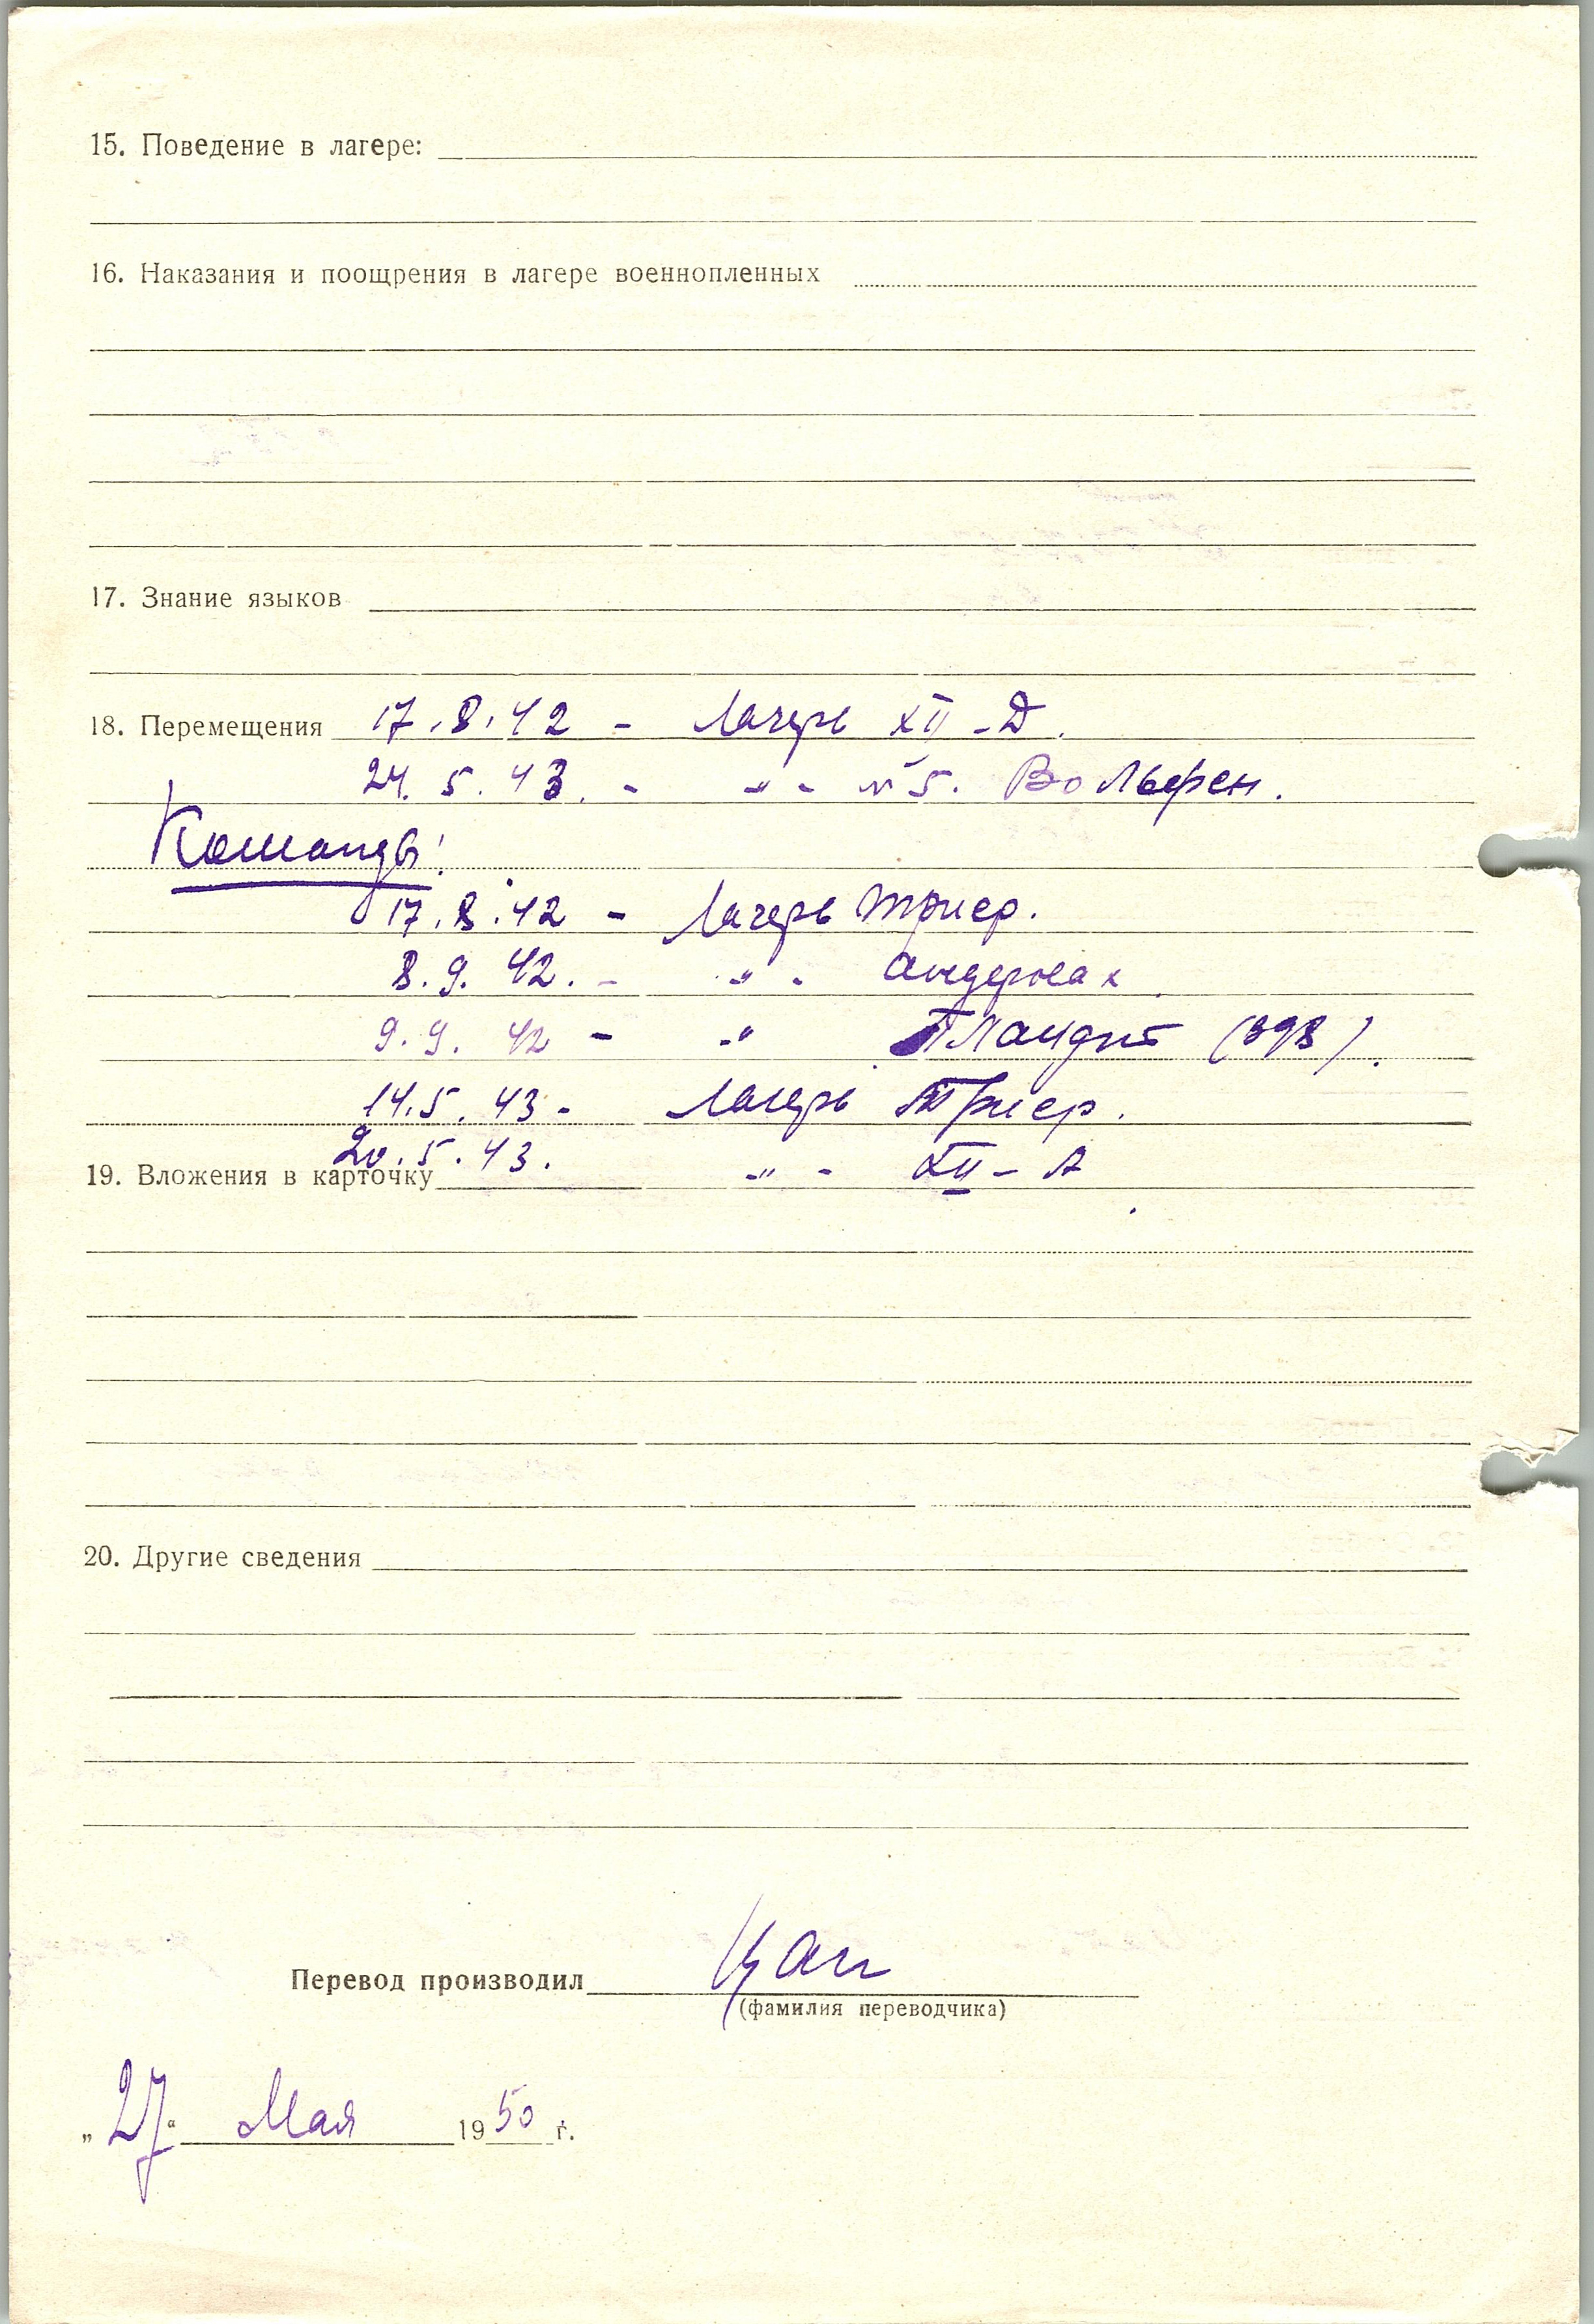 15. Поведение в лагере:
16. Наказания и поощрения в лагере военнопленных
17. Знание языков
18. Перемещения 17.8.42 - Лагерь XII-Д.
24.5.43. - -"- №5. Вольфен.
Команды:
17.8.42 - Лагерь Триер.
8.9.42. - -"- Андернах.
9.9.42 - -"- (898).
14.5.43 - Лагерь Триер.
20.5.43. -"- XII-А
19. Вложения в карточку
20. Другие сведения
Перевод производил
(фамилия переводчика)
„27“ Мая 1950 г.